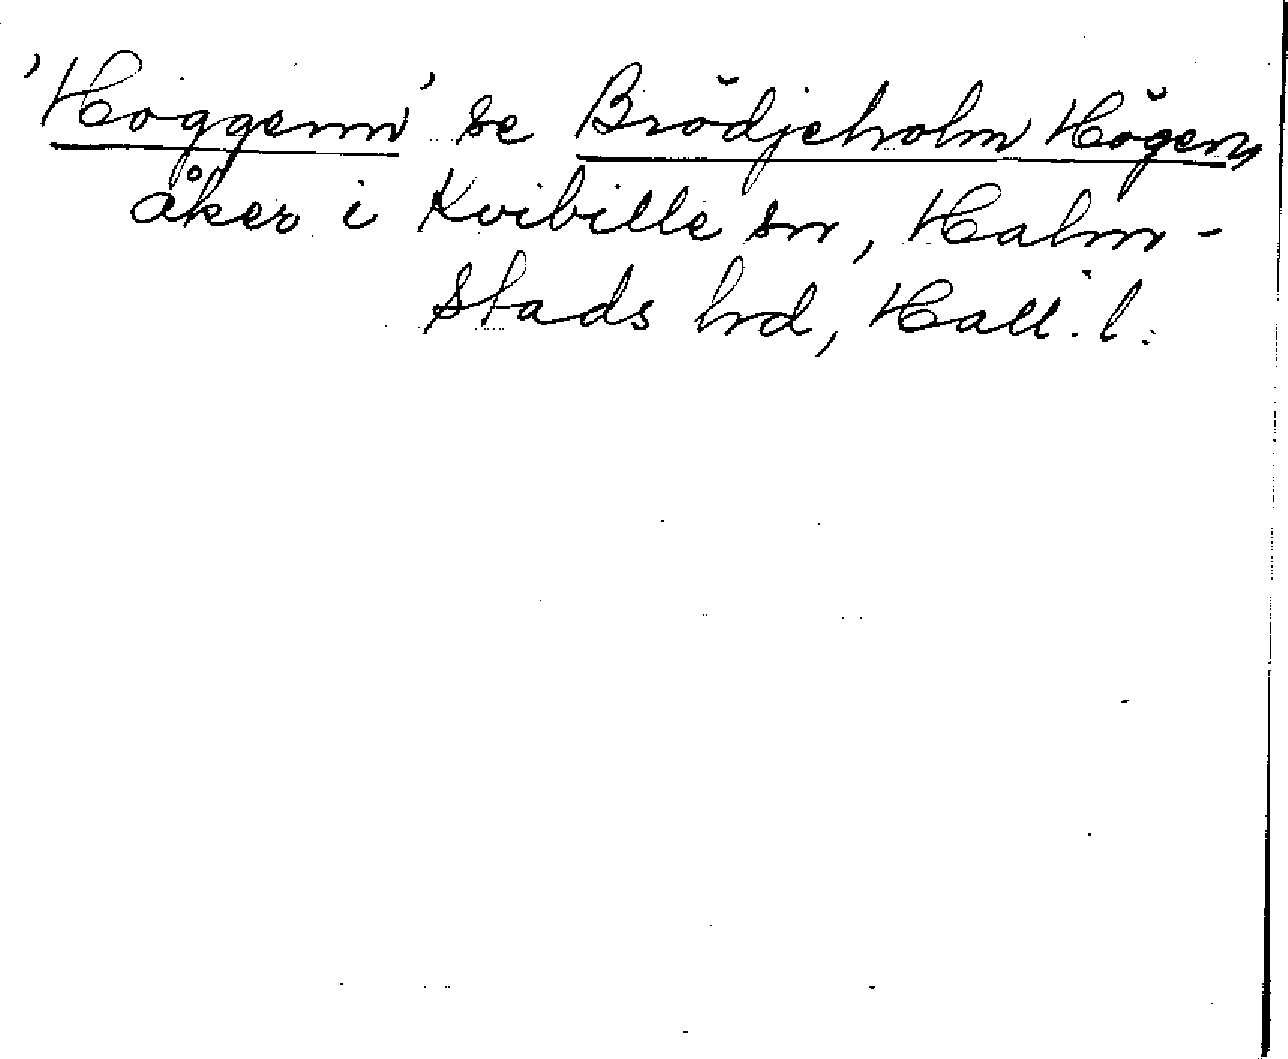 'Hoggenn' se Brödjeholm Högen,
åker i Kvibille sn, Halm-
stads hrd, Hall. l.